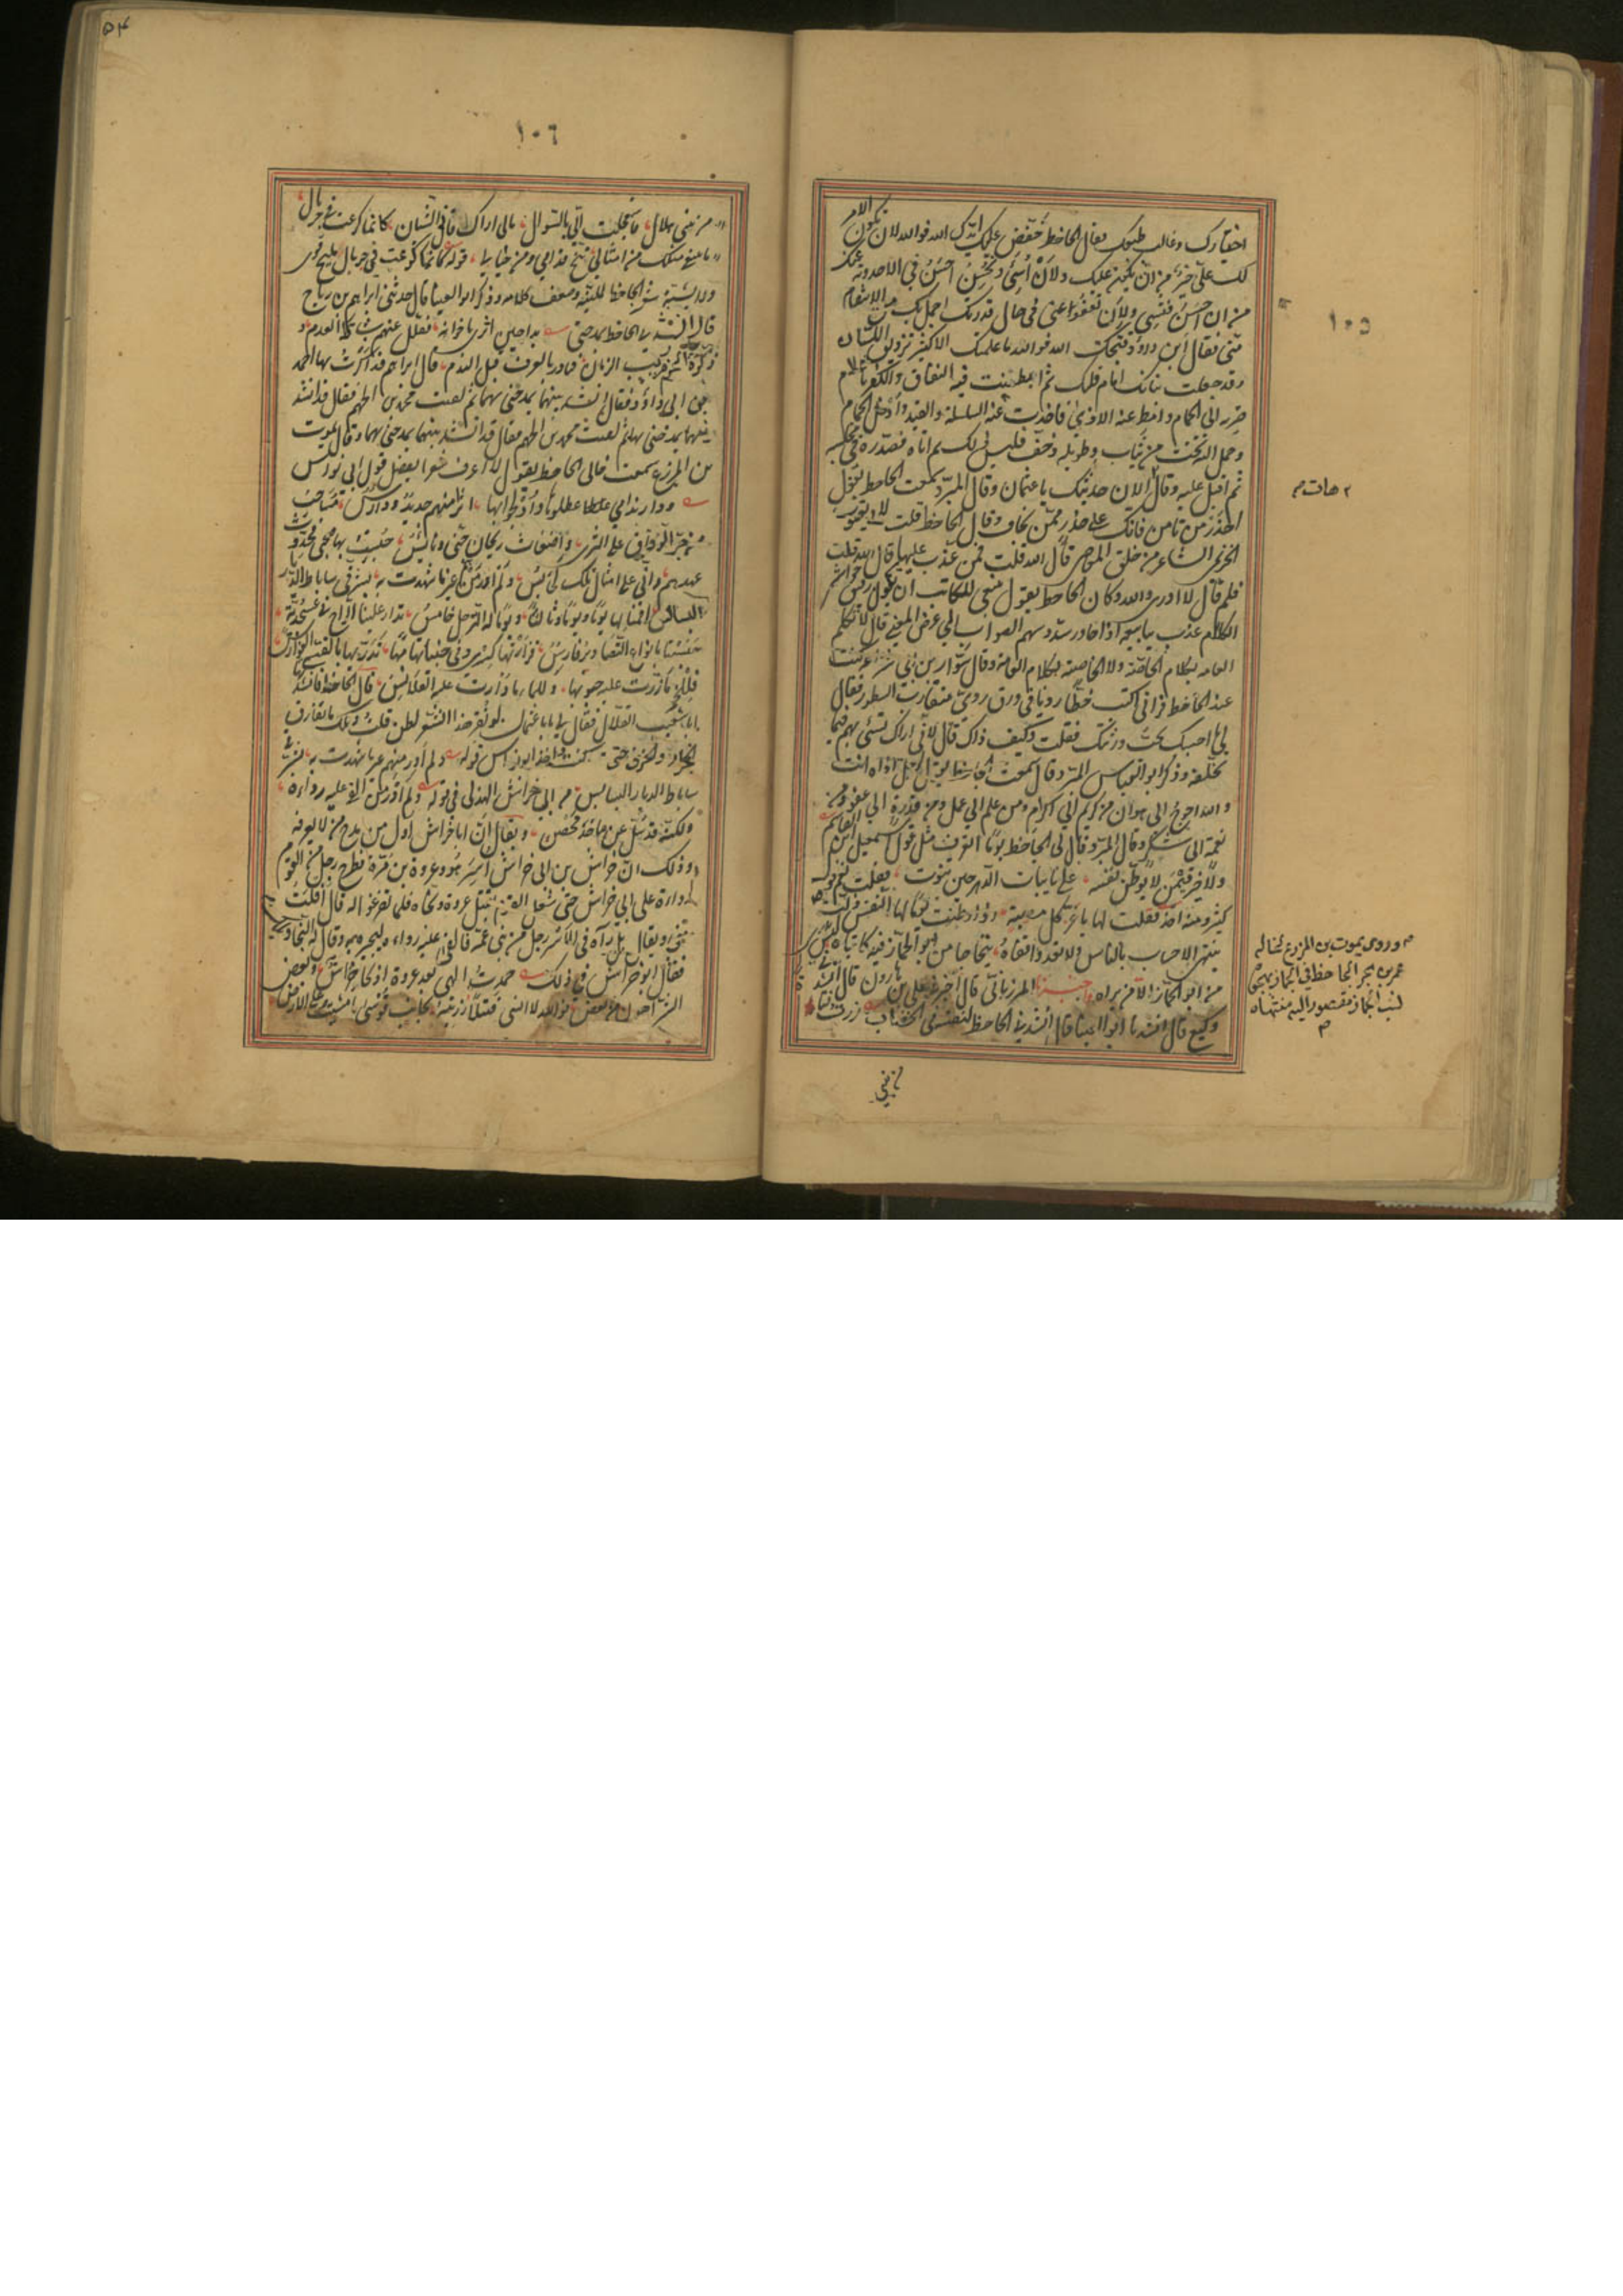 ١٠٥
اختيارك وغالب طبعك فقال الجاحظ خفض عليك ايدك الله فوالله لان يكون الامر
لك علي خير من ان يكون لي عليك ولان اسئ وتحسن احسن في الاحدوثة عنك
من ان احسن فتسئ ولان تعفو عني في حال قدرتك اجمل بك من الانتقام
مني فقال ابن ابي داود قبحك الله فوالله ما علمتك الا كثير تزويق اللسان
وقد جعلت بيانك امام قلبك ثم اصطفيت فيه النفاق والكفر يا غلام
صر به الى الحمام وامط عنه الاذى فاخذت عنه السلسلة والقيد وادخل الحمام
وحمل اليه تخت من ثياب وطويلة وخف فلبس ذلك ثم اتاه فصدره في مجلسه
ثم اقبل عليه وقال الان حديثك يا با عثمان وقال المبرد سمعت الجاحظ يقول
هات
احذر من تامن فانك على حذر ممن تخاف وقال الجاحظ قلت لابي يعقوب
الخريمي الشاعر من خلق المعاصي قال الله قلت فمن عذب عليها قال الله قلت
فلم قال لا ادري والله وكان الجاحظ يقول ينبغي للكاتب ان يكون رقيق حواشي
الكلام عذب ينابيعه اذا حاور سدد سهم الصواب الى غرض المعنى قال لا تكلم
العامة بكلام الخاصة ولا الخاصة بكلام العامة وقال سوار بن ابي شراعة كنت
عند الجاحظ فراني اكتب خطا رديا في ورق ردي متقارب السطور فقال
لي ما احسبك تحب ورثتك فقلت وكيف ذاك قال لاني اراك تسئ بهم فيما
تخلفه وذكر ابو العباس المبرد قال سمعت الجاحظ يقول لرجل اذاه انت
والله احوج الى هوان من كريم الى اكرام ومن علم الى عمل ومن قدرة الى عفو ومن
نعمة الى شكر وقال المبرد قال لي الجاحظ يوما اتعرف مثل قول اسمعيل بن القاسم
ولا خير فيمن لا يوطن نفسه على نايبات الدهر حين تنوب فقلت نعم قول
كثير ومنه اخذ فقلت لها يا عز كل مصيبة اذا وطنت يوما لها النفس ذلت
وروى يموت بن المزرع لخاله
عمرو بن بحر الجاحظ في الجماز يهجوه
نسب الجماز مقصور اليه منتهاه
ينتهي الاحساب بالناس ولا تعدو قفاه يتحاجا من ابو الجماز فيه كاتباه ليس يدري
من ابو الجماز الا من يراه اخبرنا المرزباني قال اخبرني علي بن هارون قال انشدني
وكيع قال انشدنا ابو العينا قال انشدني الجاحظ لنفسه في الخضاب زرت فتاة
من بني
٥٤
١٠٦
من بني هلال فاستعجلت الي بالسوال مالي اراك قاني السبال كانما كرعت في جريال
ما يبتغي مثلك من امثالي تنح قدامي ومن حيالي قوله كانما كرعت في جريال مليح قوي
ولا يشبه شعر الجاحظ للينه وضعف كلامه وذكر ابو العينا قال حدثني ابراهيم بن رباح
قال انشدني الجاحظ يمدحني بدا حين اثرى باخوانه ففلل عنهم شباة العدم
وذكره الحزم ريب الزمان فبادر بالعرف قبل الندم قال ابراهيم فذاكرت بها احمد
بن ابي داود فقال انشدنيهما يمدحني بهما ثم لقيت محمد بن الجهم فقال قد انشد
نيهما يمدحني بهما ثم لقيت محمد بن الجهم فقال قد انشدنيهما يمدحني بهما وقال يموت
بن المزرع سمعت خالي الجاحظ يقول لا اعرف شعرا يفضل قول ابي نواس
ودار ندامى عطلوها وادلجوا بها اثر منهم جديد ودارس مساحب
من جر الزقاق على الثرى واضغاث ريحان جني ويابس حبست بها صحبي فجددت
عهدهم واني على امثال تلك لحابس ولم ادر من هم غير ما شهدت به بشرقي ساباط الديار
البسابس اقمنا بها يوما ويوما وثالثا ويوما له يوم الترحل خامس تدار علينا الراح في عسجدية
حبتها بانواع التصاوير فارس قرارتها كسرى وفي جنباتها مها تدريها بالقسي الفوارس
فللخمر ما زرت عليه جيوبها وللماء ما دارت عليه القلانس قال الجاحظ فانشدتها
ابا شعيب القلال فقال يا ابا عثمان لو نقر هذا الشعر لطن قلت ويلك ما تفارق
الجرار والخزف حيث كنت اخذ ابو نواس قوله ولم ادر منهم غير ما شهدت به بشرقي
ساباط الديار البسابس من ابي خراش الهذلي في قوله ولم ادر من القى عليه رداءه
ولكنه قد سل عن ماجد محض ويقال ان ابا خراش اول من مدح من لا يعرفه
وذلك ان خراش بن ابي خراش اسر هو وعروة بن مرة فطرح رجل من القوم
رداءه على ابي خراش حتى شغل القوم بقتل عروة ونجاه فلما تفرغوا له قال افلت
مني ويقال بل رآه في الاسر رجل من بني عمه فالقى عليه رداءه ليجيره به وقال له النجا ويحك
فقال ابو خراش في ذلك حمدت الهي بعد عروة اذ نجا خراش وبعض
الشر اهون من بعض فوالله لا انسى قتيلا رزيته بجانب قوسى ما مشيت على الارض